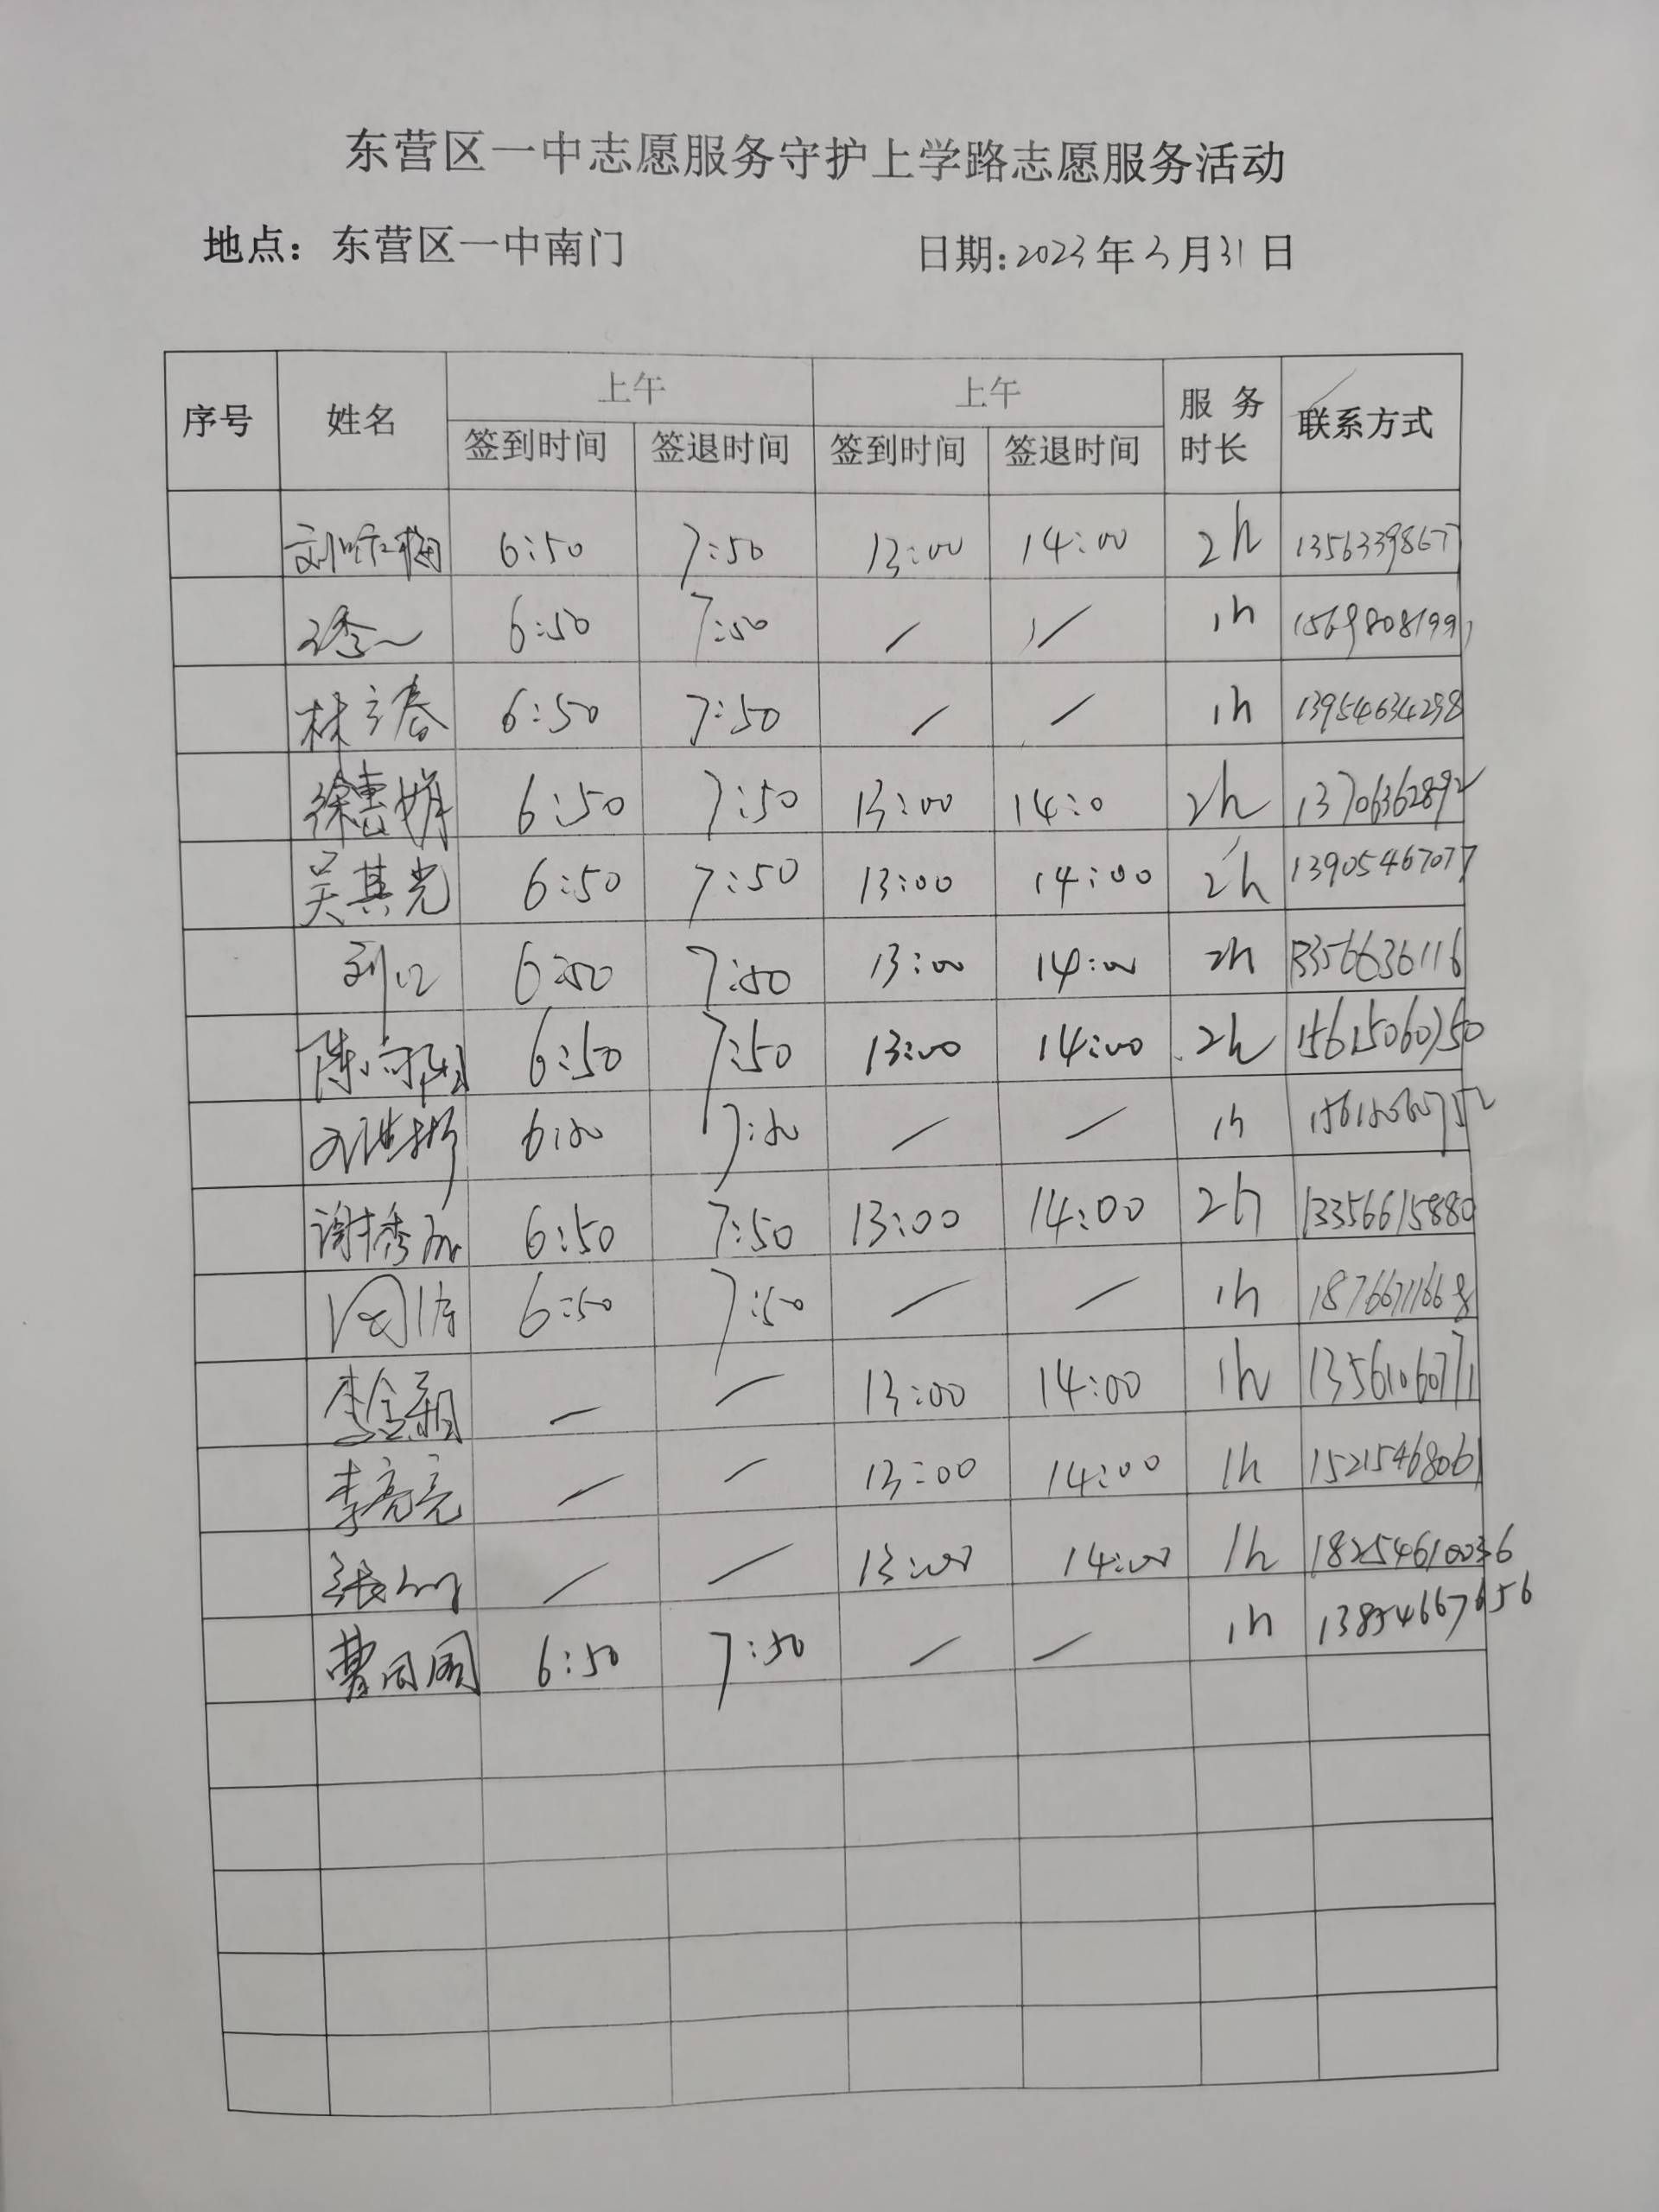 东营区一中志愿服务守护上学路志愿服务活动
地点：东营区一中南门 日期:2023年3月31日
序号 姓名 上午 上午 服务时长 联系方式
签到时间 签退时间 签到时间 签退时间
6:50 7:50 13:00 14:00 2h 13563398677
6:50 7:50 / / 1h
林立春 6:50 7:50 / / 1h 13954634298
徐惠娟 6:50 7:50 13:00 14:0 2h 13706362892
吴其光 6:50 7:50 13:00 14:00 2h 13905467077
6:50 7:50 13:00 14:00 2h 13356636116
6:50 7:50 13:00 14:00 2h 15615060750
6:50 7:50 / / 1h
谢秀 6:50 7:50 13:00 14:00 2h 13356615880
6:50 7:50 / / 1h 18766711668
李金 / / 13:00 14:00 1h 13561060771
李亮亮 / / 13:00 14:00 1h 15215468061
张 / / 13:00 14:00 1h 18254610036
曹 6:50 7:50 / / 1h 13854667656